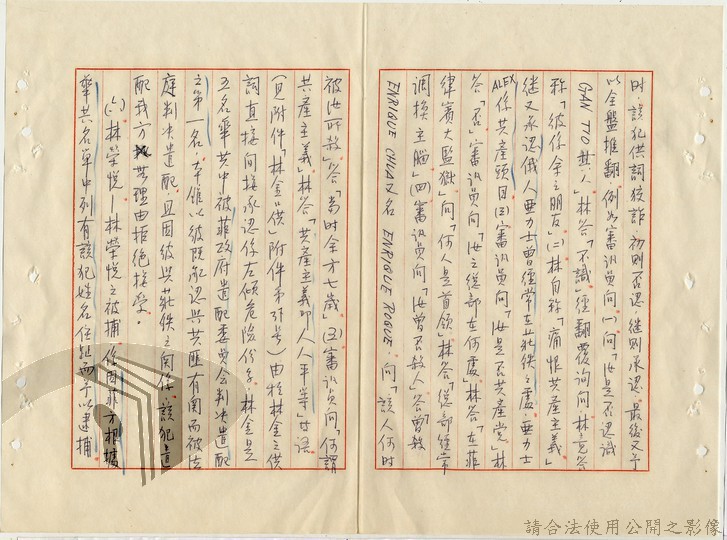 時該犯供詞狡詐初則否認、繼則承認、最後又予
以全盤推翻例如審訊員問(一)問「汝是否認識
GAN TTO 其人」林答「不識」經翻覆詢問林竟答
稱「彼係余之朋友」(二)林自稱「痛恨共產主義」
繼又承認俄人亞力士曾經常在莊秩之處、亞力士
ALEX係共產頭目(三)審訊員問「汝是不共產黨」林
答「否」審訊員問「汝之總部在何處」林答「在菲
律賓大監獄」問「何人是首領」林答「總部經常
調換主腦」(四)審訊員問「汝曾否殺人」答「曾殺
ENRIQUE CHUA又名 ENRIQUE ROQUE」問「該人何時
被汝所殺」答「當時余方七歲」(五)審訊員問「何謂
共產主義」林答「共產主義即人人平等」等語
(見附件「林金口供」附件第 號)由於林金之供
詞直接間接承認係左傾危險份子、林金是
五名華共中被菲政府遣配委員會判決遣配
之第一名、卒雖以彼既承認與共匪有關而被法
庭判決遣配、且因彼與莊秩之關係、該犯遣
配我方無理由拒絕接受。
(六)林榮悅—林榮悅之被捕、係因菲方根據
華共名單中列有該犯姓名住址而予以逮捕
請合法使用公開之影像